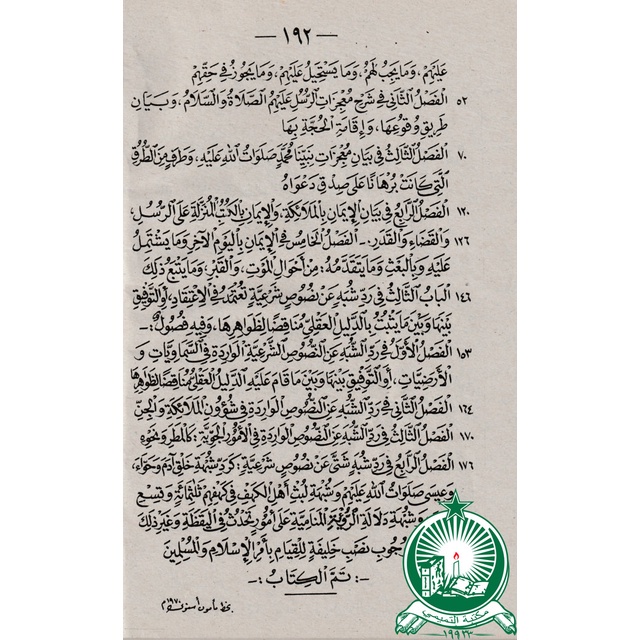 — ١٩٢ —
عَلَيْهِمْ، وَمَا يَجِبُ لَهُمْ، وَمَا يَسْتَحِيلُ عَلَيْهِمْ، وَمَا يَجُوزُ فِي حَقِّهِمْ
٥٢ الفَصْلُ الثَّانِي فِي شَرْحِ مُعْجِزَاتِ الرُّسُلِ عَلَيْهِمُ الصَّلَاةُ وَالسَّلَامُ، وَبَيَانِ
طَرِيقِ وُقُوعِهَا، وَإِقَامَةِ الحُجَّةِ بِهَا
٧٠ الفَصْلُ الثَّالِثُ فِي بَيَانِ مُعْجِزَاتِ نَبِيِّنَا مُحَمَّدٍ صَلَوَاتُ اللهِ عَلَيْهِ، وَطَرَفٍ مِنَ الطُّرُقِ
الَّتِي كَانَتْ بُرْهَانًا عَلَى صِدْقِ دَعْوَاهُ
١٢٠ الفَصْلُ الرَّابِعُ فِي بَيَانِ الإِيمَانِ بِالمَلَائِكَةِ، وَالإِيمَانِ بِالكُتُبِ المُنَزَّلَةِ عَلَى الرُّسُلِ،
١٢٦ وَالقَضَاءِ وَالقَدَرِ. - الفَصْلُ الخَامِسُ فِي الإِيمَانِ بِاليَوْمِ الآخِرِ وَمَا يَشْتَمِلُ
عَلَيْهِ وَبِالبَعْثِ وَمَا يَتَقَدَّمُهُ: مِنْ أَحْوَالِ المَوْتِ، وَالقَبْرِ، وَمَا يَتْبَعُ ذَلِكَ
١٤٦ البَابُ الثَّالِثُ فِي رَدِّ شُبَهٍ عَنْ نُصُوصٍ شَرْعِيَّةٍ تُعْتَمَدُ فِي الاِعْتِقَادِ، أَوِ التَّوْفِيقِ
بَيْنَهَا وَبَيْنَ مَا يَثْبُتُ بِالدَّلِيلِ العَقْلِيِّ مُنَاقِضًا لِظَوَاهِرِهَا، وَفِيهِ فُصُولٌ: -
١٥٣ الفَصْلُ الأَوَّلُ فِي رَدِّ الشُّبَهِ عَنِ النُّصُوصِ الشَّرْعِيَّةِ الوَارِدَةِ فِي السَّمَاوِيَّاتِ وَ
الأَرْضِيَّاتِ، أَوِ التَّوْفِيقِ بَيْنَهَا وَبَيْنَ مَا قَامَ عَلَيْهِ الدَّلِيلُ العَقْلِيُّ مُنَاقِضًا لِظَوَاهِرِهَا
١٦٤ الفَصْلُ الثَّانِي فِي رَدِّ الشُّبَهِ عَنِ النُّصُوصِ الوَارِدَةِ فِي شُؤُونِ المَلَائِكَةِ وَالجِنِّ
١٧٠ الفَصْلُ الثَّالِثُ فِي رَدِّ الشُّبَهِ عَنِ النُّصُوصِ الوَارِدَةِ فِي الأُمُورِ الجَوِّيَّةِ: كَالمَطَرِ وَنَحْوِهِ
١٧٦ الفَصْلُ الرَّابِعُ فِي رَدِّ شُبَهٍ شَتَّى عَنْ نُصُوصٍ شَرْعِيَّةٍ: كَرَدِّ شُبْهَةِ خَلْقِ آدَمَ وَحَوَّاءَ،
وَعِيسَى صَلَوَاتُ اللهِ عَلَيْهِمْ وَشُبْهَةِ لُبْثِ أَهْلِ الكَهْفِ فِي كَهْفِهِمْ ثَلَثَمِائَةٍ وَتِسْعِ
وَشُبْهَةِ دَلَالَةِ الرُّؤْيَةِ المَنَامِيَّةِ عَلَى أُمُورٍ تَحْدُثُ فِي اليَقَظَةِ وَغَيْرِ ذَلِكَ
وُجُوبِ نَصْبِ خَلِيفَةٍ لِلْقِيَامِ بِأَمْرِ الإِسْلَامِ وَالمُسْلِمِينَ
-: تَمَّ الكِتَابُ: -
بخط مأمون ١٩٧٠م
مكتبة التميمي
١٩٩٣